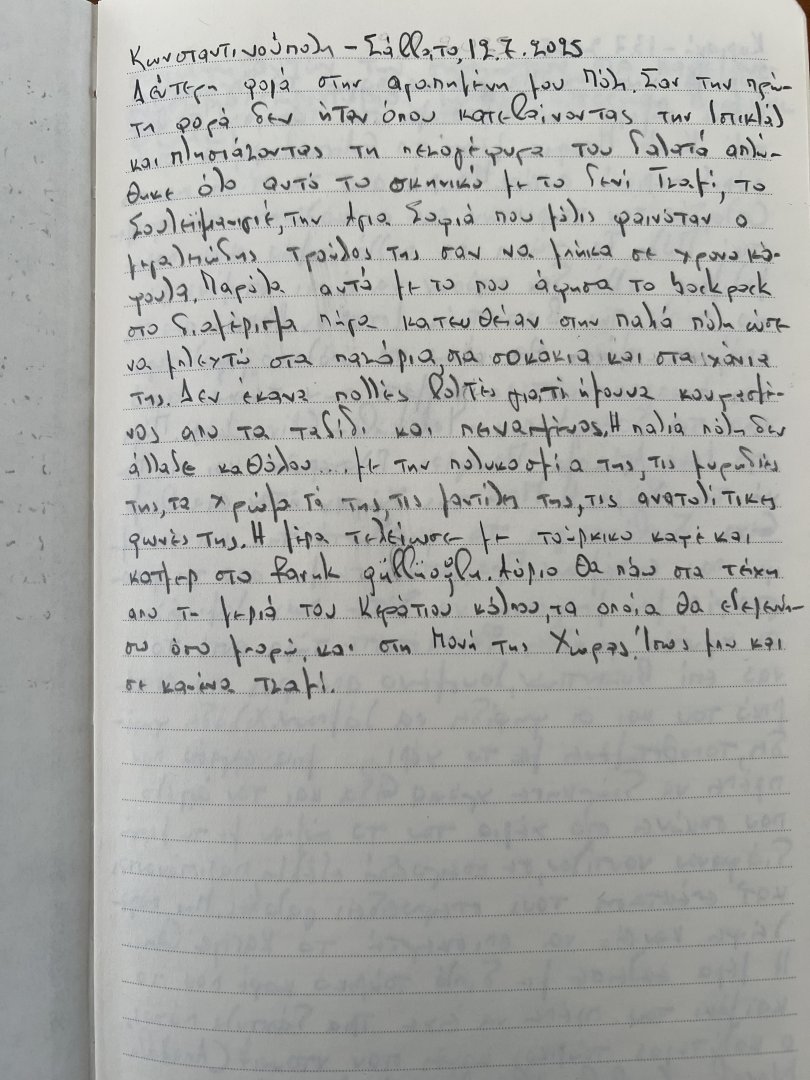 Κωνσταντινούπολη – Σάββατο, 12.7.2025
Δεύτερη φορά στην αγαπημένη μου Πόλη. Σαν την πρώ-
τη φορά δεν ήταν όπου κατεβαίνοντας την Ιστικλάλ
και πλησιάζοντας τη πεζογέφυρα του Γαλατά απλώ-
θηκε όλο αυτό το σκηνικό με το Γενί Τζαμί, το
Σουλεϊμανιγιέ, την Αγια Σοφιά που μόλις φαινόταν ο
μεγαλειώδης τρούλος της σαν να μπήκα σε χρονοκά-
ψουλα. Παρόλα αυτά με το που άφησα το backpack
στο διαμέρισμα πήρα κατευθείαν στην παλιά πόλη ώστε
να μπλεχτώ στα παζάρια, στα σοκάκια και στα χάνια
της. Δεν έκανα πολλές βόλτες γιατί ήμουνα κουρασμέ-
νος απο το ταξίδι και πεινασμένος. Η παλιά πόλη δεν
άλλαξε καθόλου... με την πολυκοσμία της, τις μυρωδιές
της, τα χρώματά της, τις μαντίλες της, τις ανατολίτικες
φωνές της. Η μέρα τελείωσε με τούρκικο καφέ και
κατμερ στο faruk güllüoğlu. Αύριο θα πάω στα τείχη
απο τη μεριά του Κεράτιου κόλπου, τα οποία θα εξερευνή-
σω όσο μπορώ, και στη Μονή της Χώρας. Ίσως μπω και
σε κανένα τζαμί.